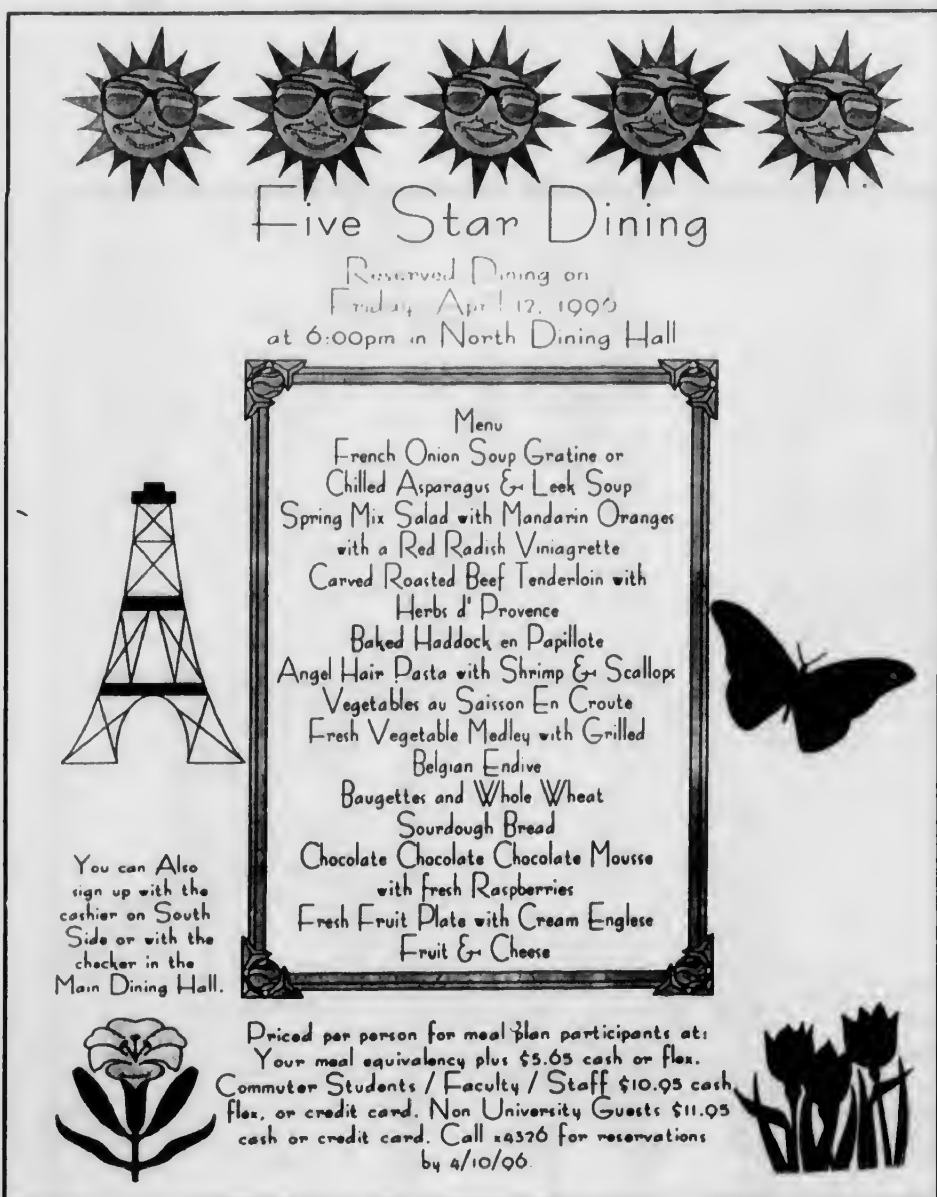 Five Star Dining
Reserved Dining on
Friday, April 12, 1996
at 6:00pm in North Dining Hall
Menu
French Onion Soup Gratine or
Chilled Asparagus & Leek Soup
Spring Mix Salad with Mandarin Oranges
with a Red Radish Viniagrette
Carved Roasted Beef Tenderloin with
Herbs d' Provence
Baked Haddock en Papillote
Angel Hair Pasta with Shrimp & Scallops
Vegetables au Saisson En Croute
Fresh Vegetable Medley with Grilled
Belgian Endive
Baugettes and Whole Wheat
Sourdough Bread
Chocolate Chocolate Chocolate Mousse
with fresh Raspberries
Fresh Fruit Plate with Cream Englese
Fruit & Cheese
You can Also
sign up with the
cashier on South
Side or with the
checker in the
Main Dining Hall.
Priced per person for meal plan participants at:
Your meal equivalency plus $5.65 cash or flex.
Commuter Students / Faculty / Staff $10.95 cash,
flex, or credit card. Non University Guests $11.95
cash or credit card. Call x4376 for reservations
by 4/10/96.